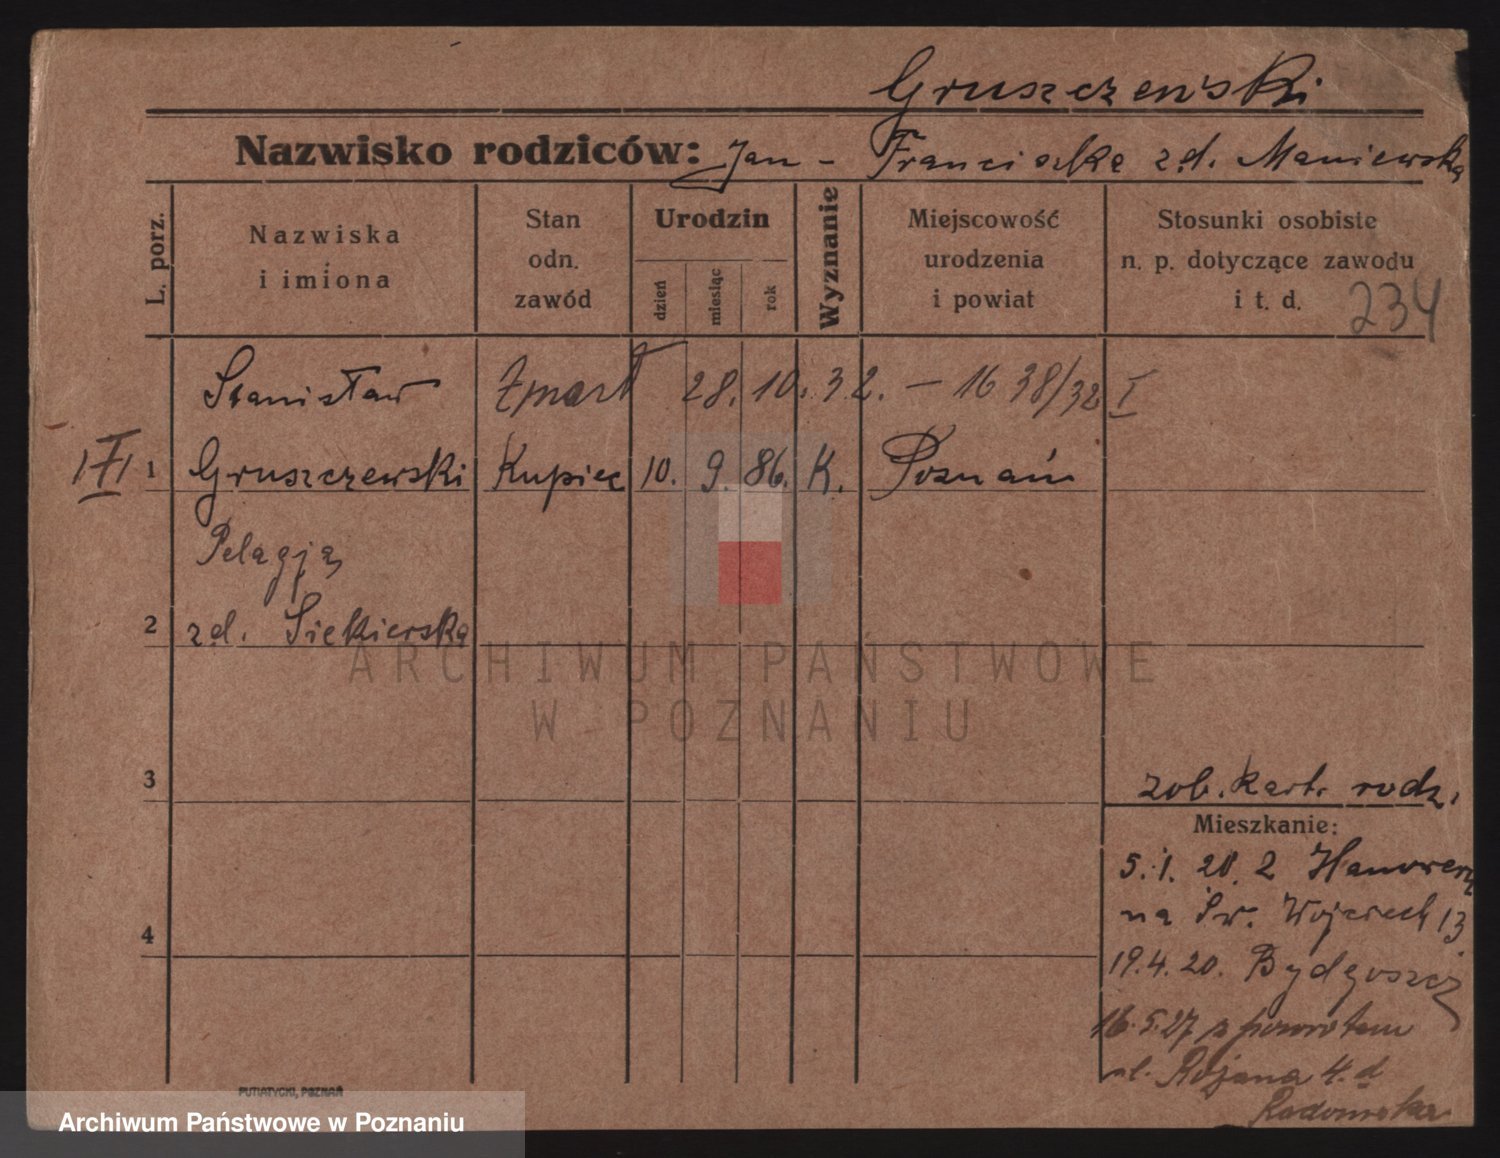 Gruszczewski
Nazwisko rodziców: Jan - Franciszka zd. Maniewska
L. porz.
Nazwiska
i imiona
Stan
odn.
zawód
Urodzin
dzień
miesiąc
rok
Wyznanie
Miejscowość
urodzenia
i powiat
Stosunki osobiste
n. p. dotyczące zawodu
i t. d.
234
Stanisław Zmarł 28. 10. 32. - 1638/32 I
1 Gruszczewski Kupiec 10. 9. 86. K. Poznań
Pelagja
2 zd. Siekierska
ARCHIWUM PAŃSTWOWE
W POZNANIU
3
zob. kart. rodz.
Mieszkanie:
5.1.20. z
na Św. Wojciech 13
4
19.4.20. Bydgoszcz
16.5.27 z powrotem
ul. 4.d
PUTIATYCKI, POZNAŃ
Archiwum Państwowe w Poznaniu